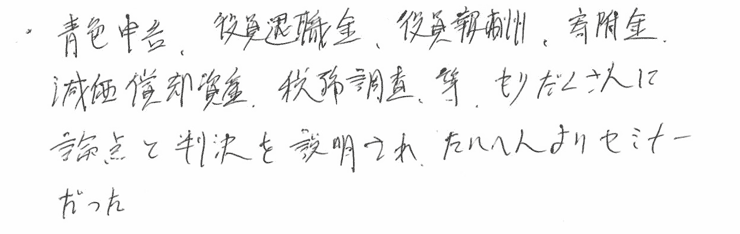 ・青色申告、役員退職金、役員報酬、寄附金、
減価償却資産、税務調査、等、もりだくさんに
論点と判決を説明され、たいへんよりセミナー
だった